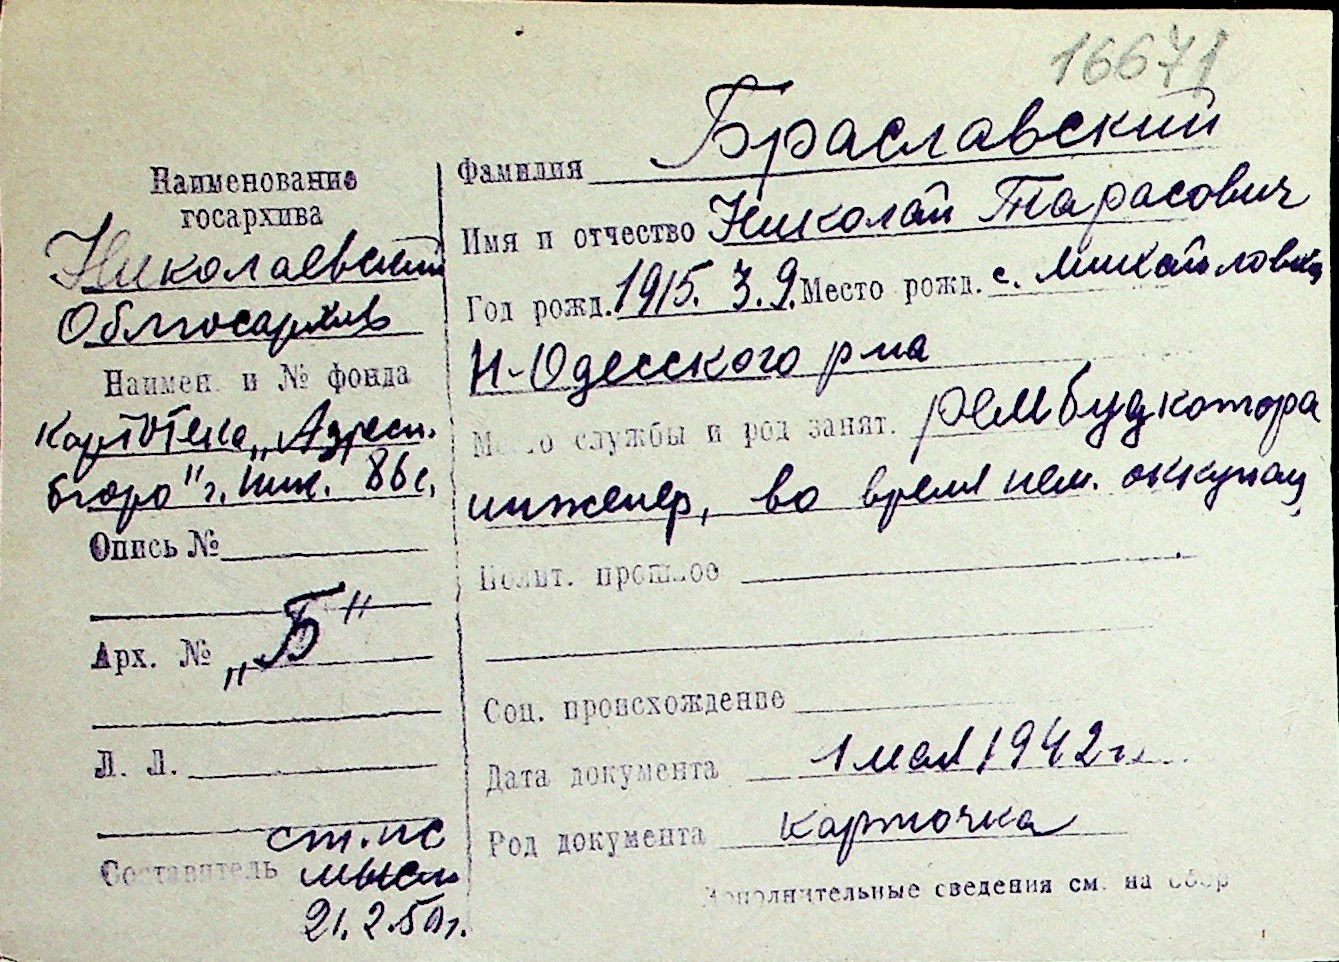 16671
Наименование
госархива
Николаевский
Облгосархив
Наимен. и № фонда
Картотека „Адресн.
бюро" г. Ник. 86с.
Опись №
Арх. № „Б"
Л. Л.
Составитель ст. н/с
21.2.50г.
Фамилия Браславский
Имя и отчество Николай Тарасович
Год рожд. 1915. 3. 9. Место рожд. с. Михайловка
Н-Одесского р-на
Место службы и род занят. рембудконтора
инженер, во время нем. оккупац,
Полит. прошлое
Соц. происхождение
Дата документа 1 мая 1942 г.
Род документа карточка
Дополнительные сведения см. на обор